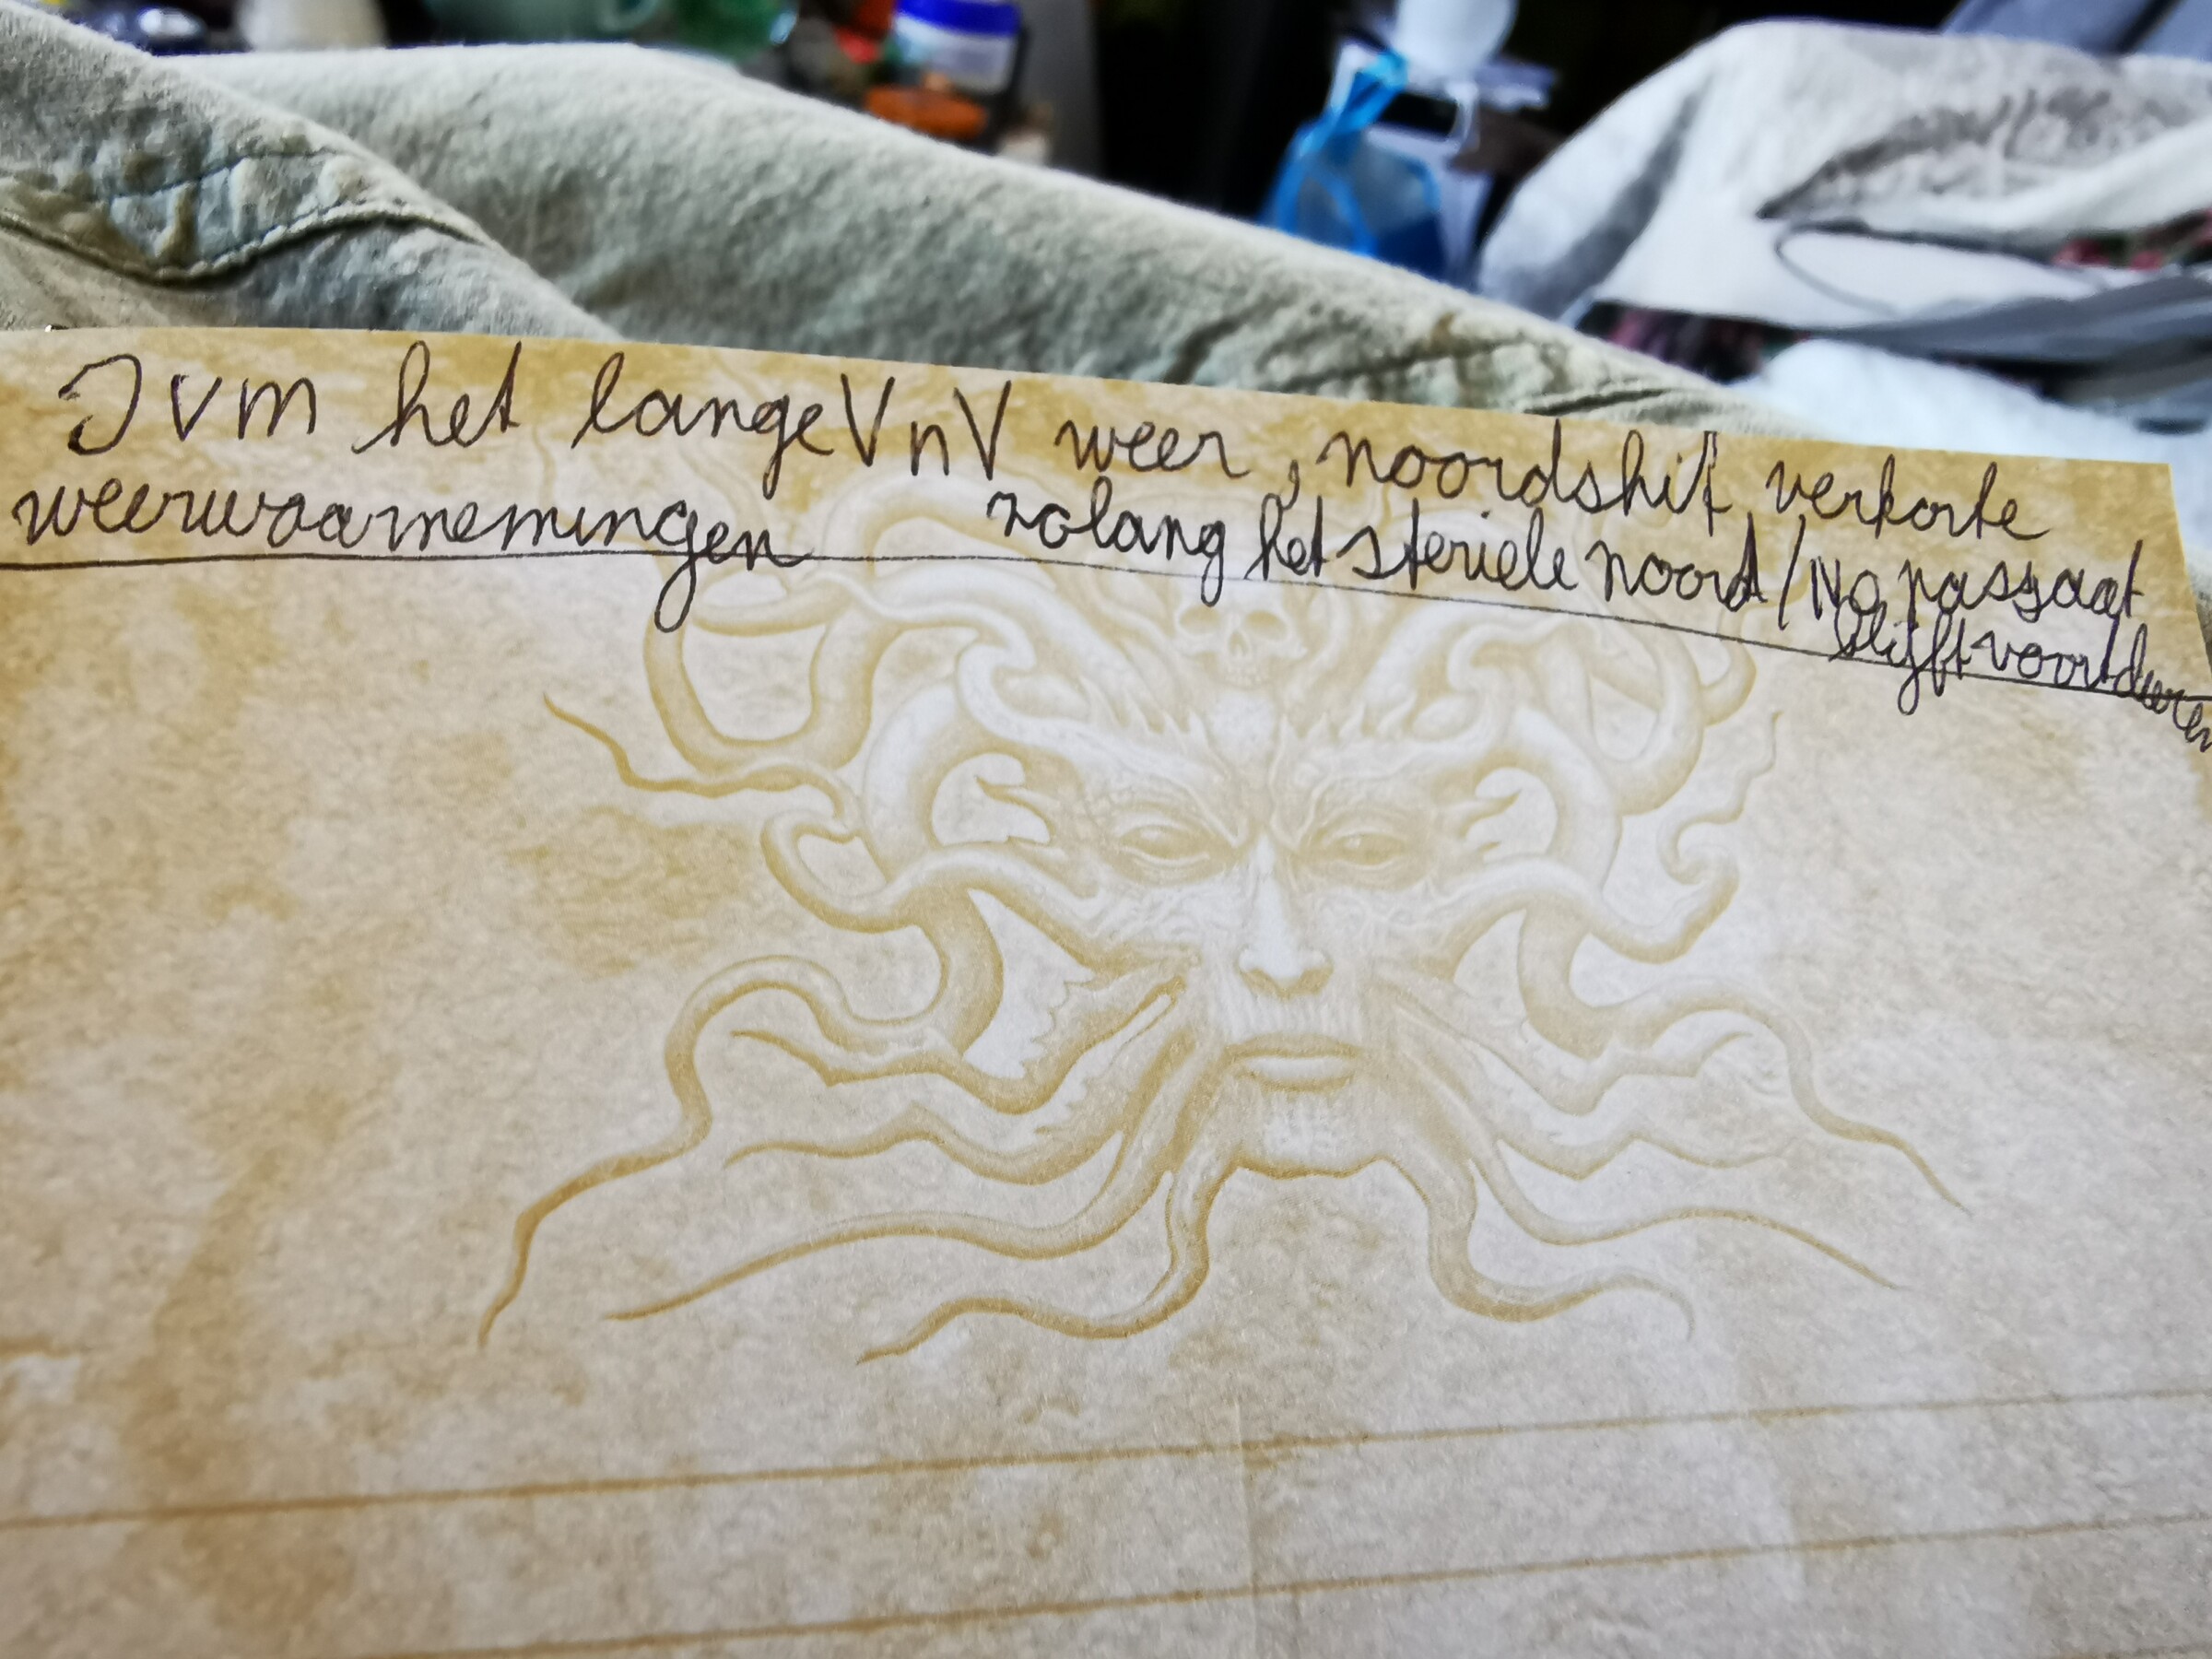 IVM het lange VnV weer, noordshift verkorte
weerwaarnemingen zolang het steriele noord/No passaat
blijft voortduren